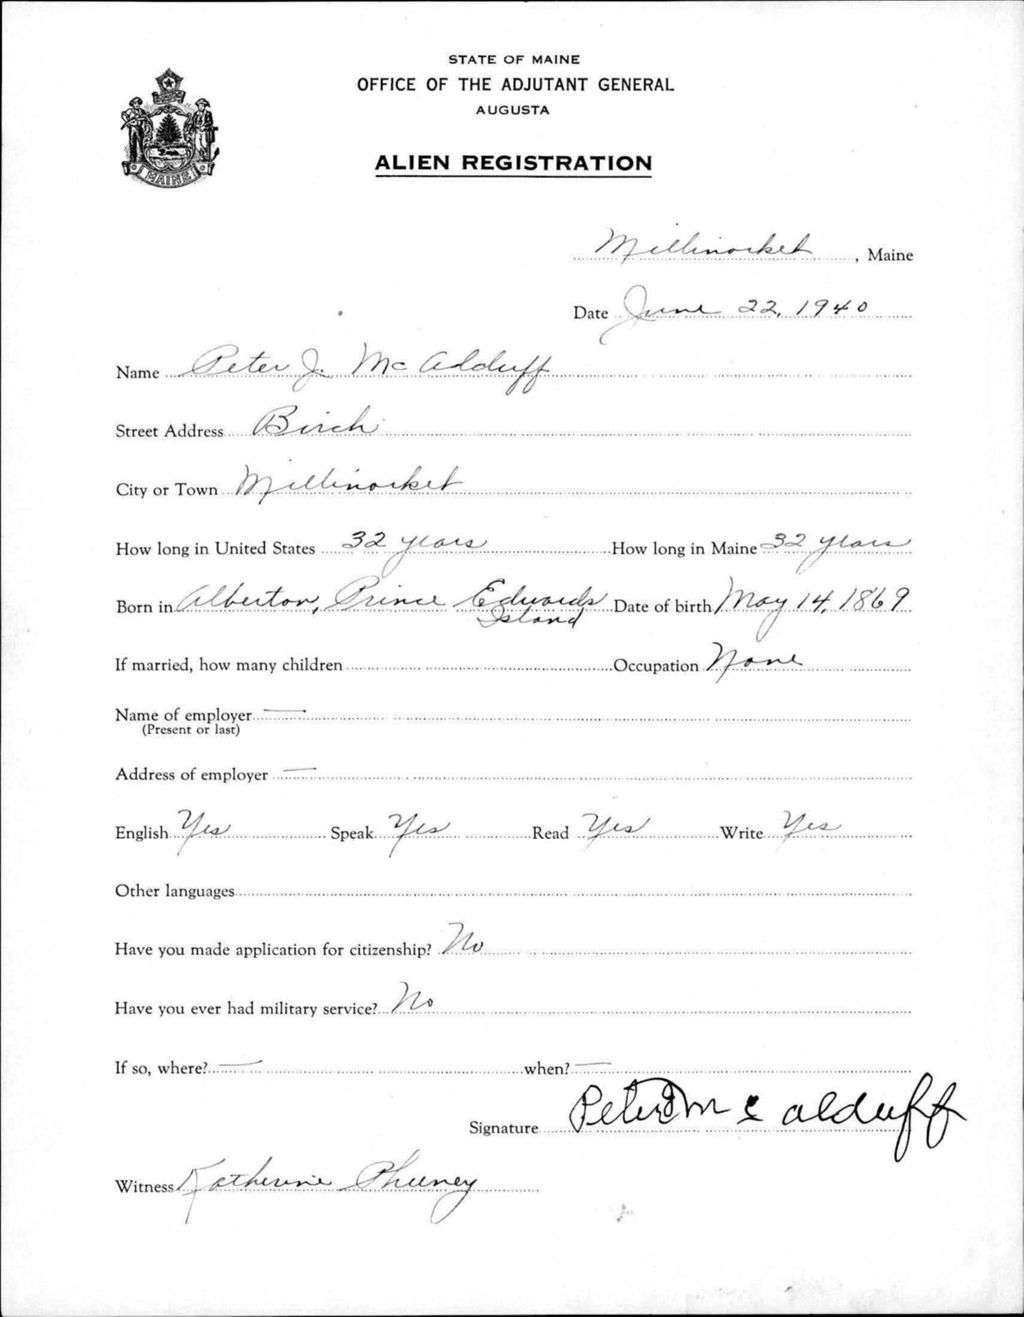 STATE OF MAINE
OFFICE OF THE ADJUTANT GENERAL
AUGUSTA
ALIEN REGISTRATION
MAINE
Millinocket, Maine
Date June 22, 1940
Name Peter J. McAdduff
Street Address Birch
City or Town Millinocket
How long in United States 32 years How long in Maine 32 years
Born in Alberton, Prince Edwards Island Date of birth May 14, 1869
If married, how many children Occupation None
Name of employer —
(Present or last)
Address of employer —
English Yes Speak Yes Read Yes Write Yes
Other languages
Have you made application for citizenship? No
Have you ever had military service? No
If so, where? — when? —
Signature Peter J Mc alduff
Witness Katherine Pheeney